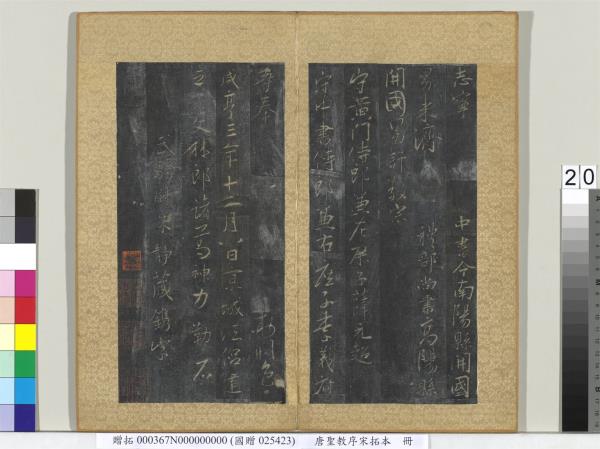 志寧 中書令南陽縣開國
男來濟 禮部尚書高陽縣
開國男許敬宗
守黃門侍郎兼左庶子薛元超
守中書侍郎兼右庶子李義府
等奉 勅潤色
咸亨三年十二月八日京城法侶建
立 文林郎諸葛神力勒石
武騎尉朱靜藏鐫字
20
贈拓 000367N000000000 (國贈 025423) 唐聖教序宋拓本 冊